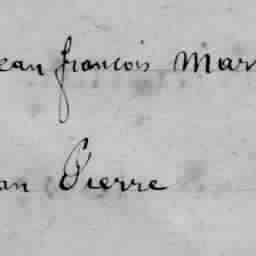 ean francois Mar
an Pierre